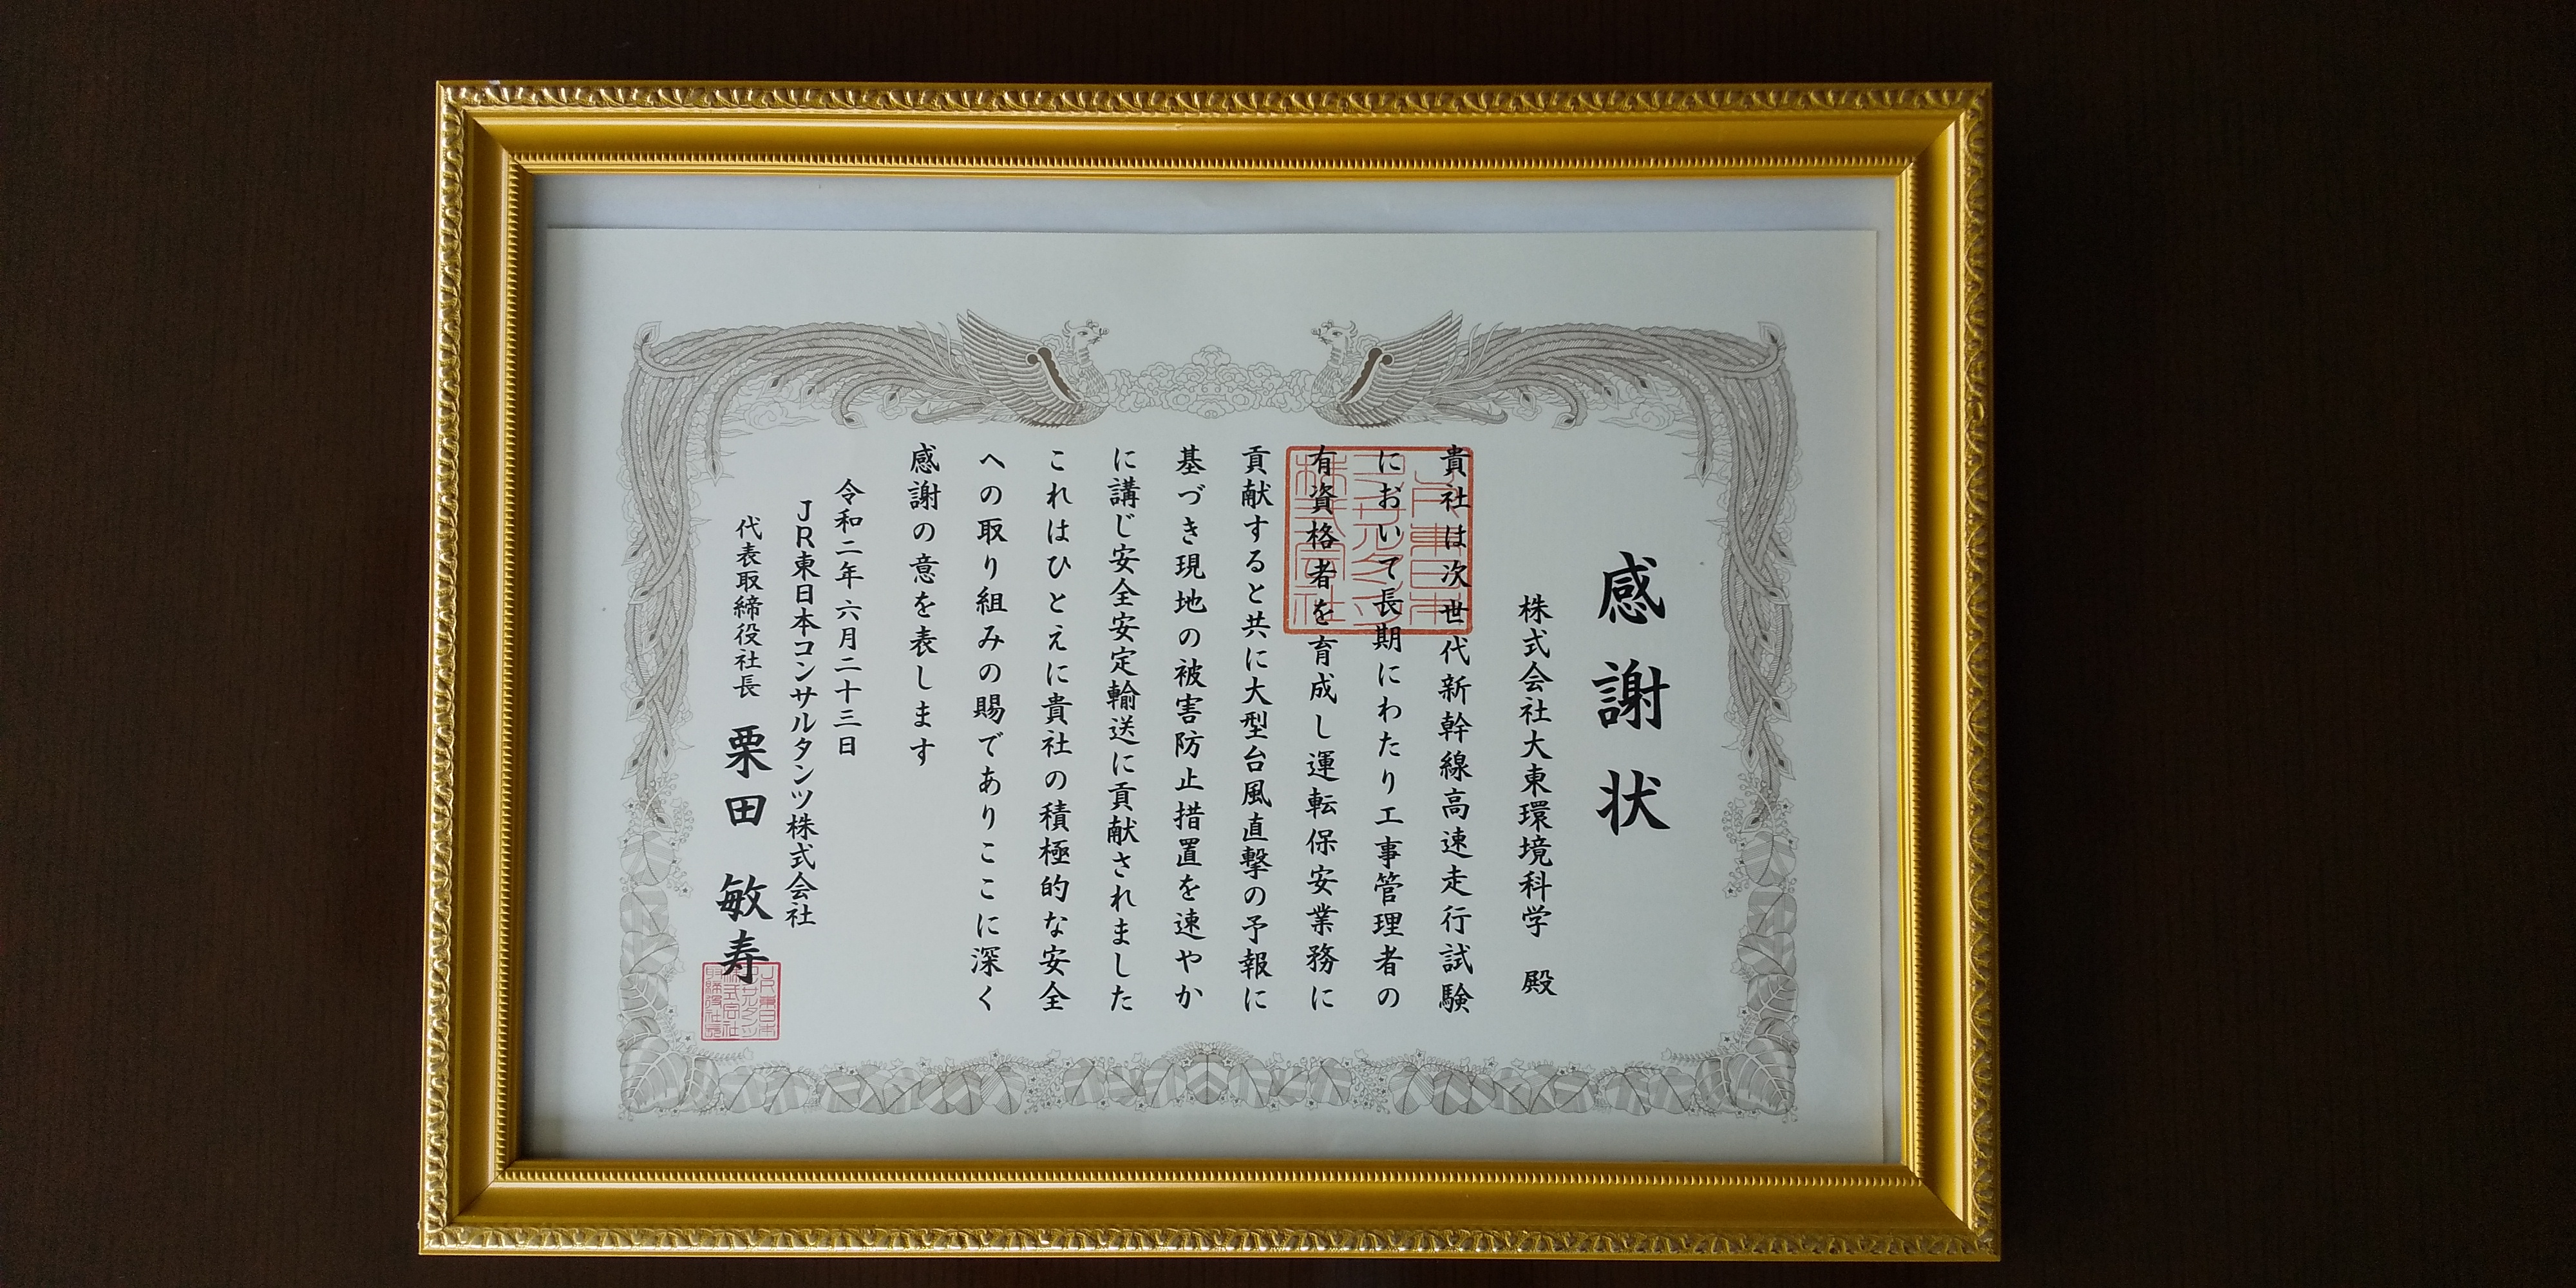 感謝状
株式会社大東環境科学 殿
貴社は次世代新幹線高速走行試験
において長期にわたり工事管理者の
有資格者を育成し運転保安業務に
貢献すると共に大型台風直撃の予報に
基づき現地の被害防止措置を速やか
に講じ安全安定輸送に貢献されました
これはひとえに貴社の積極的な安全
への取り組みの賜でありここに深く
感謝の意を表します
令和二年六月二十三日
JR東日本コンサルタンツ株式会社
代表取締役社長 栗田 敏寿